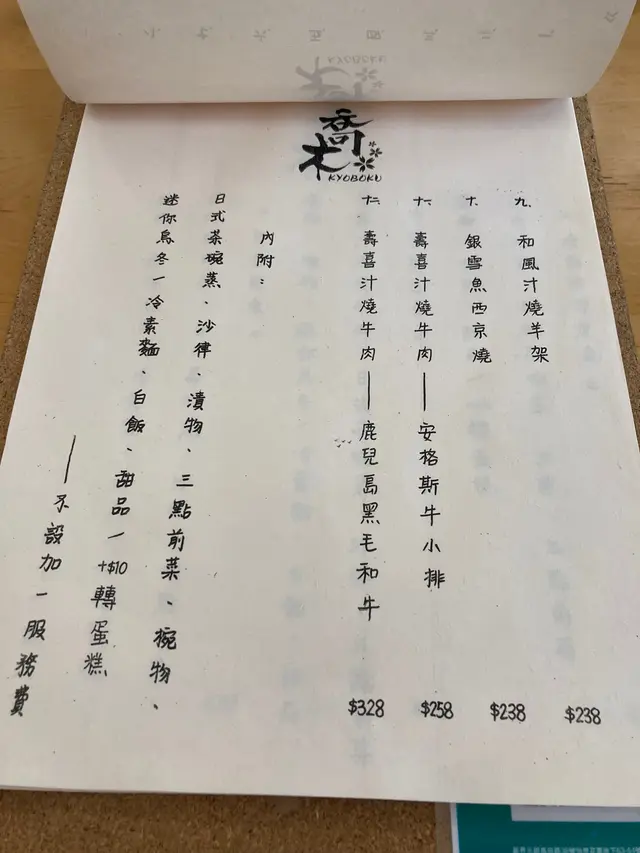 喬木
KYOBOKU
九、和風汁燒羊架 $238
十、銀雪魚西京燒 $238
十一、壽喜汁燒牛肉——安格斯牛小排 $258
十二、壽喜汁燒牛肉——鹿兒島黑毛和牛 $328
內附：
日式茶碗蒸、沙律、漬物、三點前菜、椀物、
迷你烏冬/冷素麵、白飯、甜品/+$10轉蛋糕
——不設加一服務費